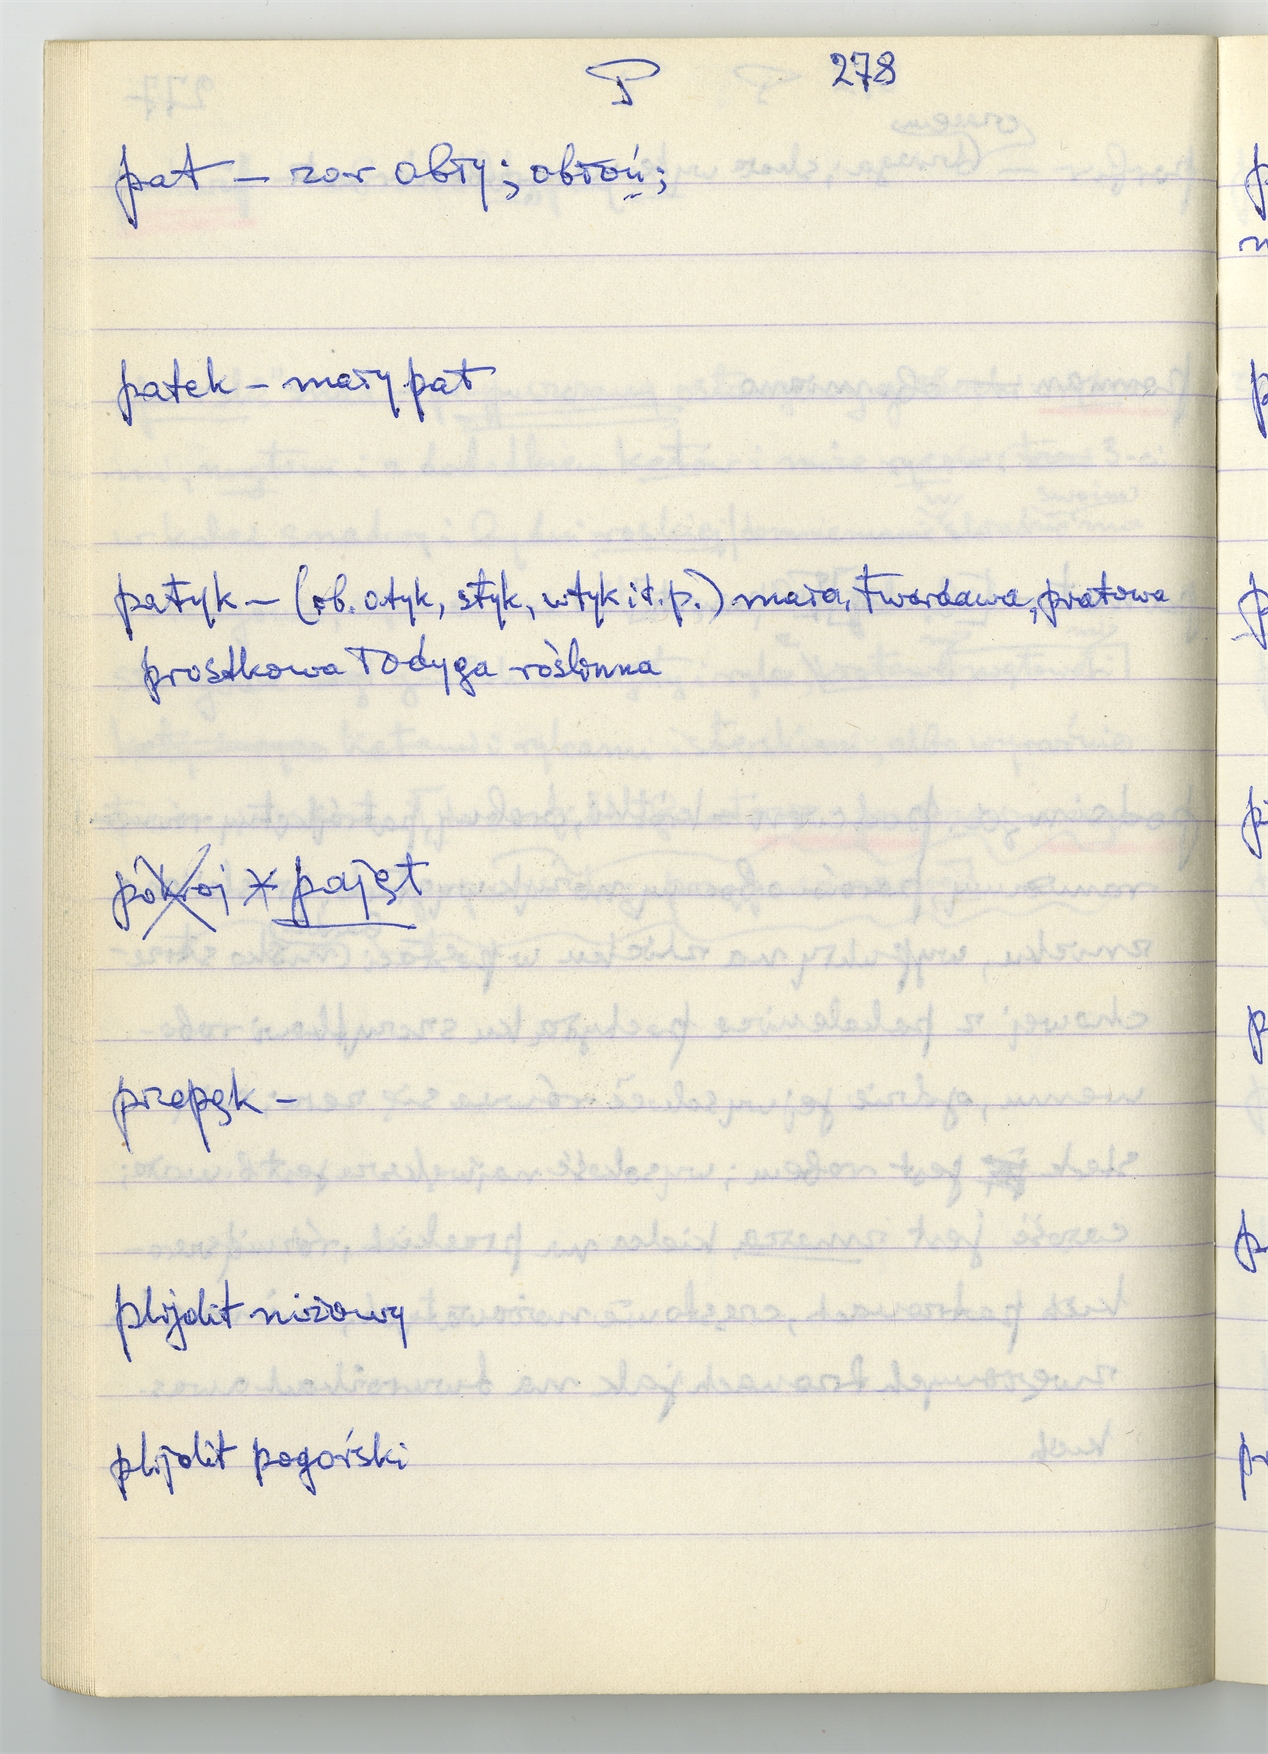 P 278
pat – zor obły; obłoń;
patek – mały pat
patyk – (ob. otyk, styk, wtyk i t.p.) mała, twardawa, prątowa
prostkowa łodyga roślinna
pokroj * pajęt
przepęk –
plijolit niżowy
plijolit pogórski